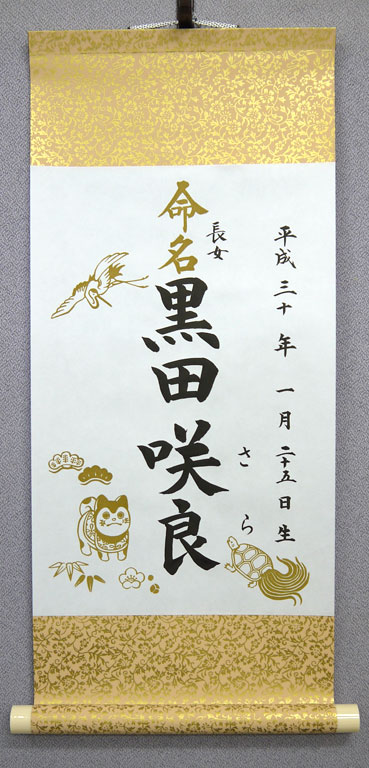 平成三十年一月二十五日生
長女
命名
黒田咲良
さら